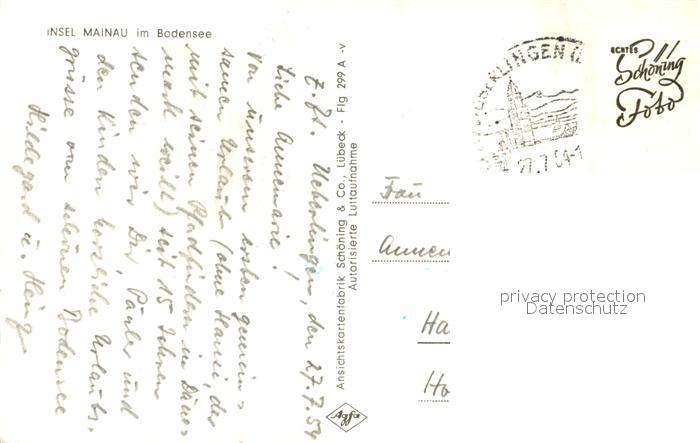 INSEL MAINAU im Bodensee
z. Zt. Ueberlingen, den 27.7.54
Liebe Annemarie!
Von unserem ersten gemein-
samen Urlaub (ohne Hansi, der
mit seinen Pfadfindern in Däne-
mark weilt) seit 15 Jahren
senden wir Dir, Paul und
den Kindern herzliche Urlaubs-
grüsse vom schönen Bodensee
Hildegard u. Heinz
Ansichtskartenfabrik Schöning & Co., Lübeck - Flg 299 A -v
Autorisierte Luftaufnahme
Agfa
ÜBERLINGEN (
27.7.54-1
ECHTES
Schöning
Foto
Frau
Annem
Ha
Ho
privacy protection
Datenschutz